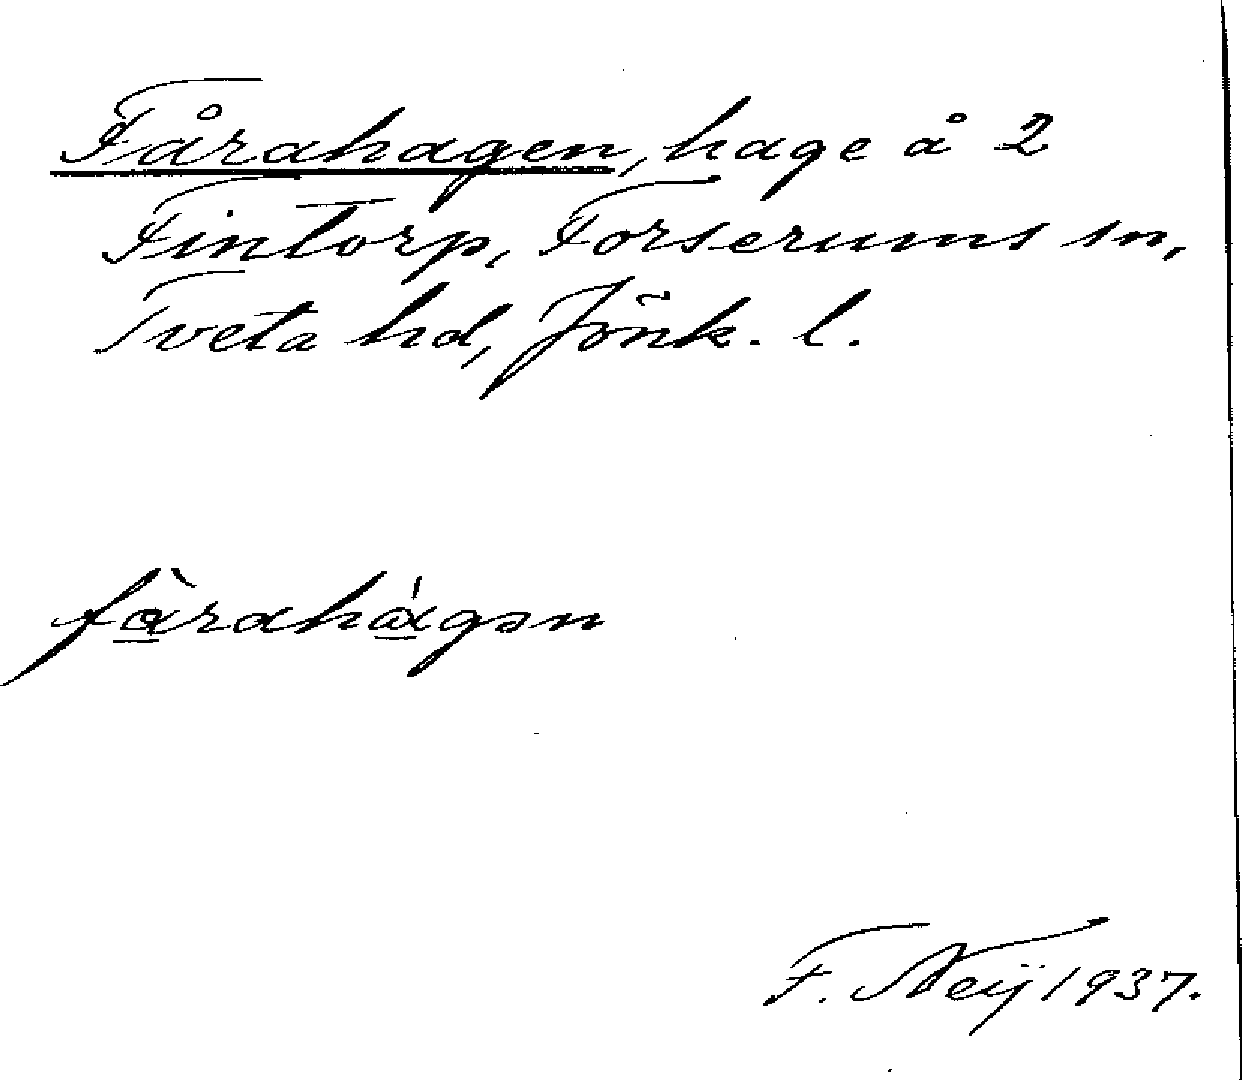 Fårahagen, hage å 2
Fintorp, Forserums sn,
Tveta hd, Jönk. l.
fàrahágən
F. Neij 1937.